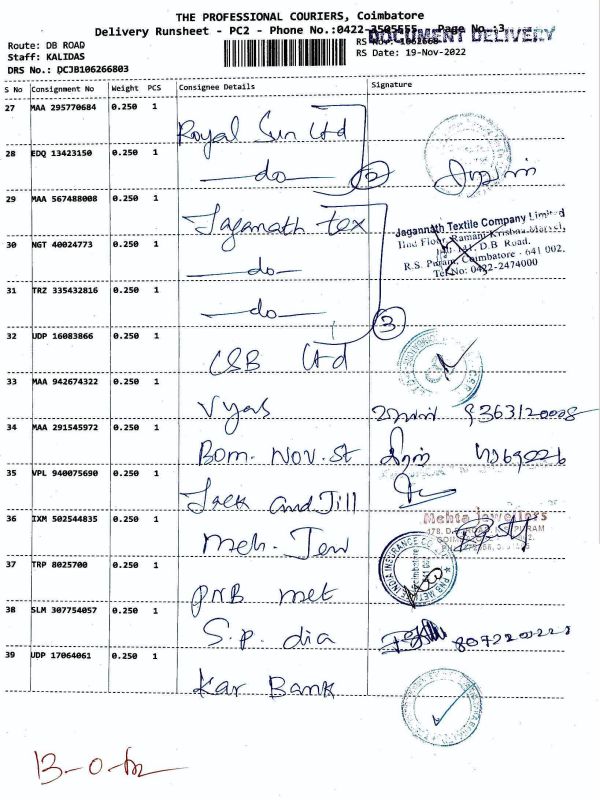 THE PROFESSIONAL COURIERS, Coimbatore
Delivery Runsheet - PC2 - Phone No.:0422- Page No.:3
DOCUMENT DELIVERY
Route: DB ROAD
Staff: KALIDAS
DRS No.: DCJB106266803
RS Date: 19-Nov-2022
S No Consignment No Weight PCS Consignee Details Signature
27 MAA 295770684 0.250 1 Royal Sun Ltd
28 EDQ 13423150 0.250 1 -do- 2
29 MAA 567488008 0.250 1 Jaganath tex
Jagannath Textile Company Limited
IInd Floor, Ramani Krishna Marvel,
D.B. Road,
R.S. Puram, Coimbatore - 641 002.
Tel No: 0422-2474000
30 NGT 40024773 0.250 1 -do-
31 TRZ 335432816 0.250 1 -do- 3
32 UDP 16083866 0.250 1 CSB Ltd
33 MAA 942674322 0.250 1 Vyas
34 MAA 291545972 0.250 1 Bom. Nov. St
35 VPL 940075690 0.250 1 Jack and Jill
Mehta Jewellers
36 IXM 502544835 0.250 1 Meh. Jew
37 TRP 8025700 0.250 1 PNB met
38 SLM 307754057 0.250 1 S.p. dia
39 UDP 17064061 0.250 1 Kar Bank